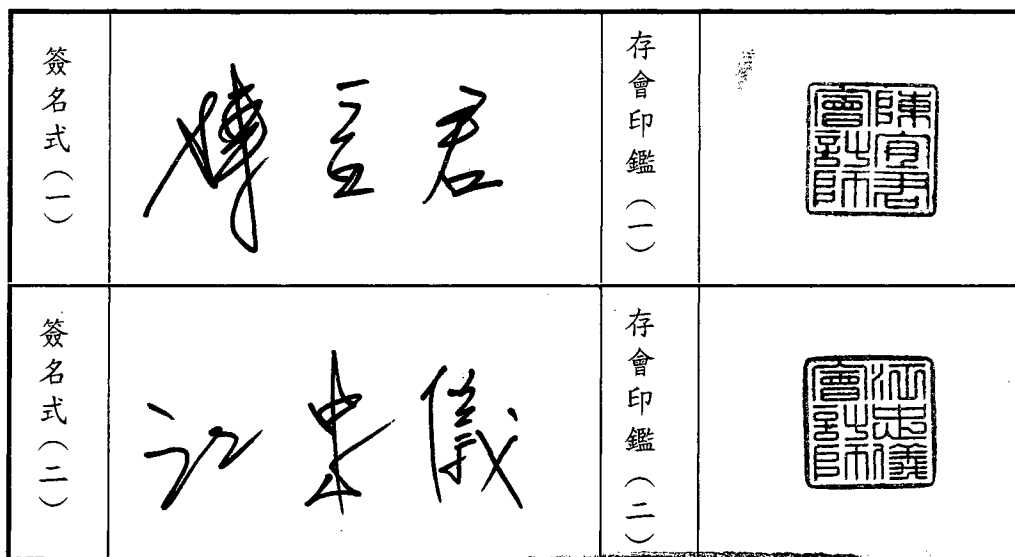 簽名式(一)
陳宜君
存會印鑑(一)
陳宜君
會計師
簽名式(二)
江忠儀
存會印鑑(二)
江忠儀
會計師